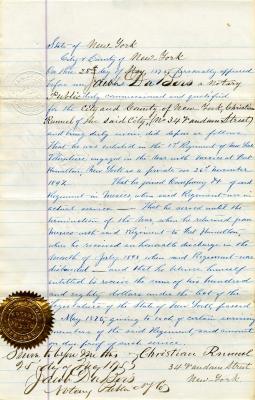 State of New York
City & County of New York
On this 28th day of May 1875 personally appeared
before me Jacob DuBois a Notary
Public duly commissioned and qualified
for the City and County of New York, Christian
Runnel of the said City (No 34 Vandam Street)
and being duly sworn did depose as follows.
That he was enlisted in the 1st Regiment of New York
Volunteers engaged in the War with Mexico at Fort
Hamilton, New York as a private on 26 November
1847. That he joined Company of said
Regiment in Mexico when said Regiment was in
actual service — That he served until the
termination of the War when he returned from
Mexico with said Regiment to Fort Hamilton,
when he received an honorable discharge in the
month of July 1848 when said Regiment was
disbanded — and that he believes himself
entitled to receive the sum of one hundred
and eighty dollars under the Act of the
Legislature of the State of New York passed
May 1875, giving to each of certain surviving
members of the said Regiment, said amount
in day part of such service.
Sworn to before me this Christian Runnel
28 day of May 1875 34 Vandam Street
Jacob DuBois New York.
Notary Public N.Y. Co